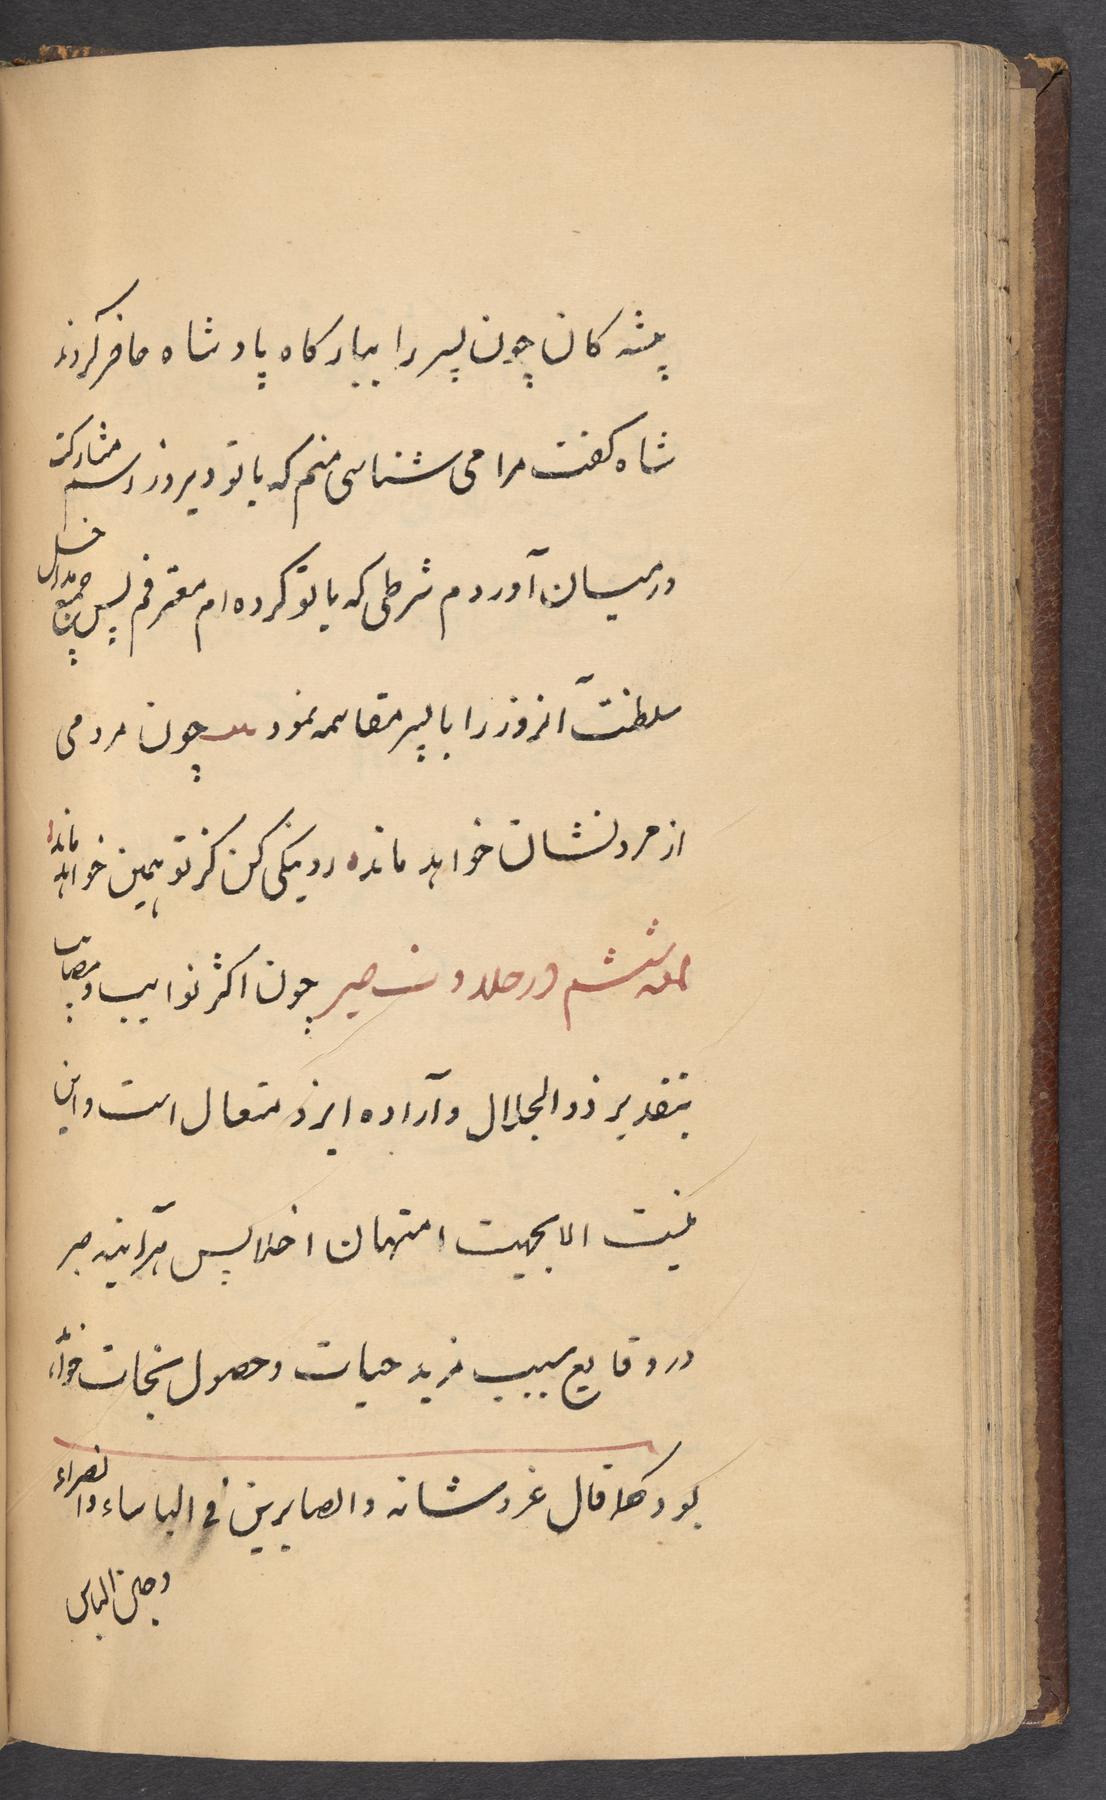 پیشه کان چون پسر را ببارکاه پادشاه حاضر کردند
شاه کفت مرا می شناسی منم که با تو دیروز رسم مشارکت
درمیان آوردم شرطی که با تو کرده ام معترفم پس جمیع مداخل
سلطنت آنروز را با پسر مقاسمه نمود چون مردمی
از مرد نشان خواهد مانده رو نیکی کن کز تو همین خواهد مانده
لمعه ششم در حلاوت صبر چون اکثر نوایب و مصایب
بتقدیر ذوالجلال و آراده ایزد متعال است و این
نیست الا بجهت امتهان اخلا پس هرآینه صبر
در وقایع سبب مزید حیات و حصول نجات خواهد
بود کما قال عز و شانه والصابرین فی الباساء والضراء
وحین الباس